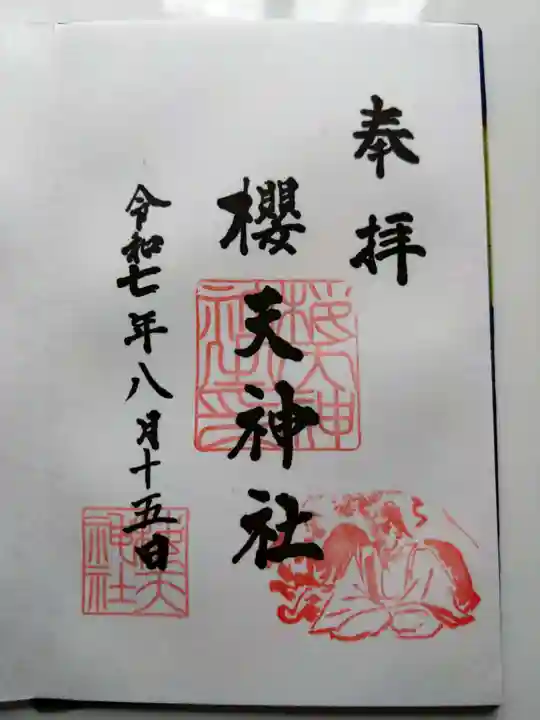 奉拝
櫻天神社
令和七年八月十五日
桜天神
社之印
桜天
神社